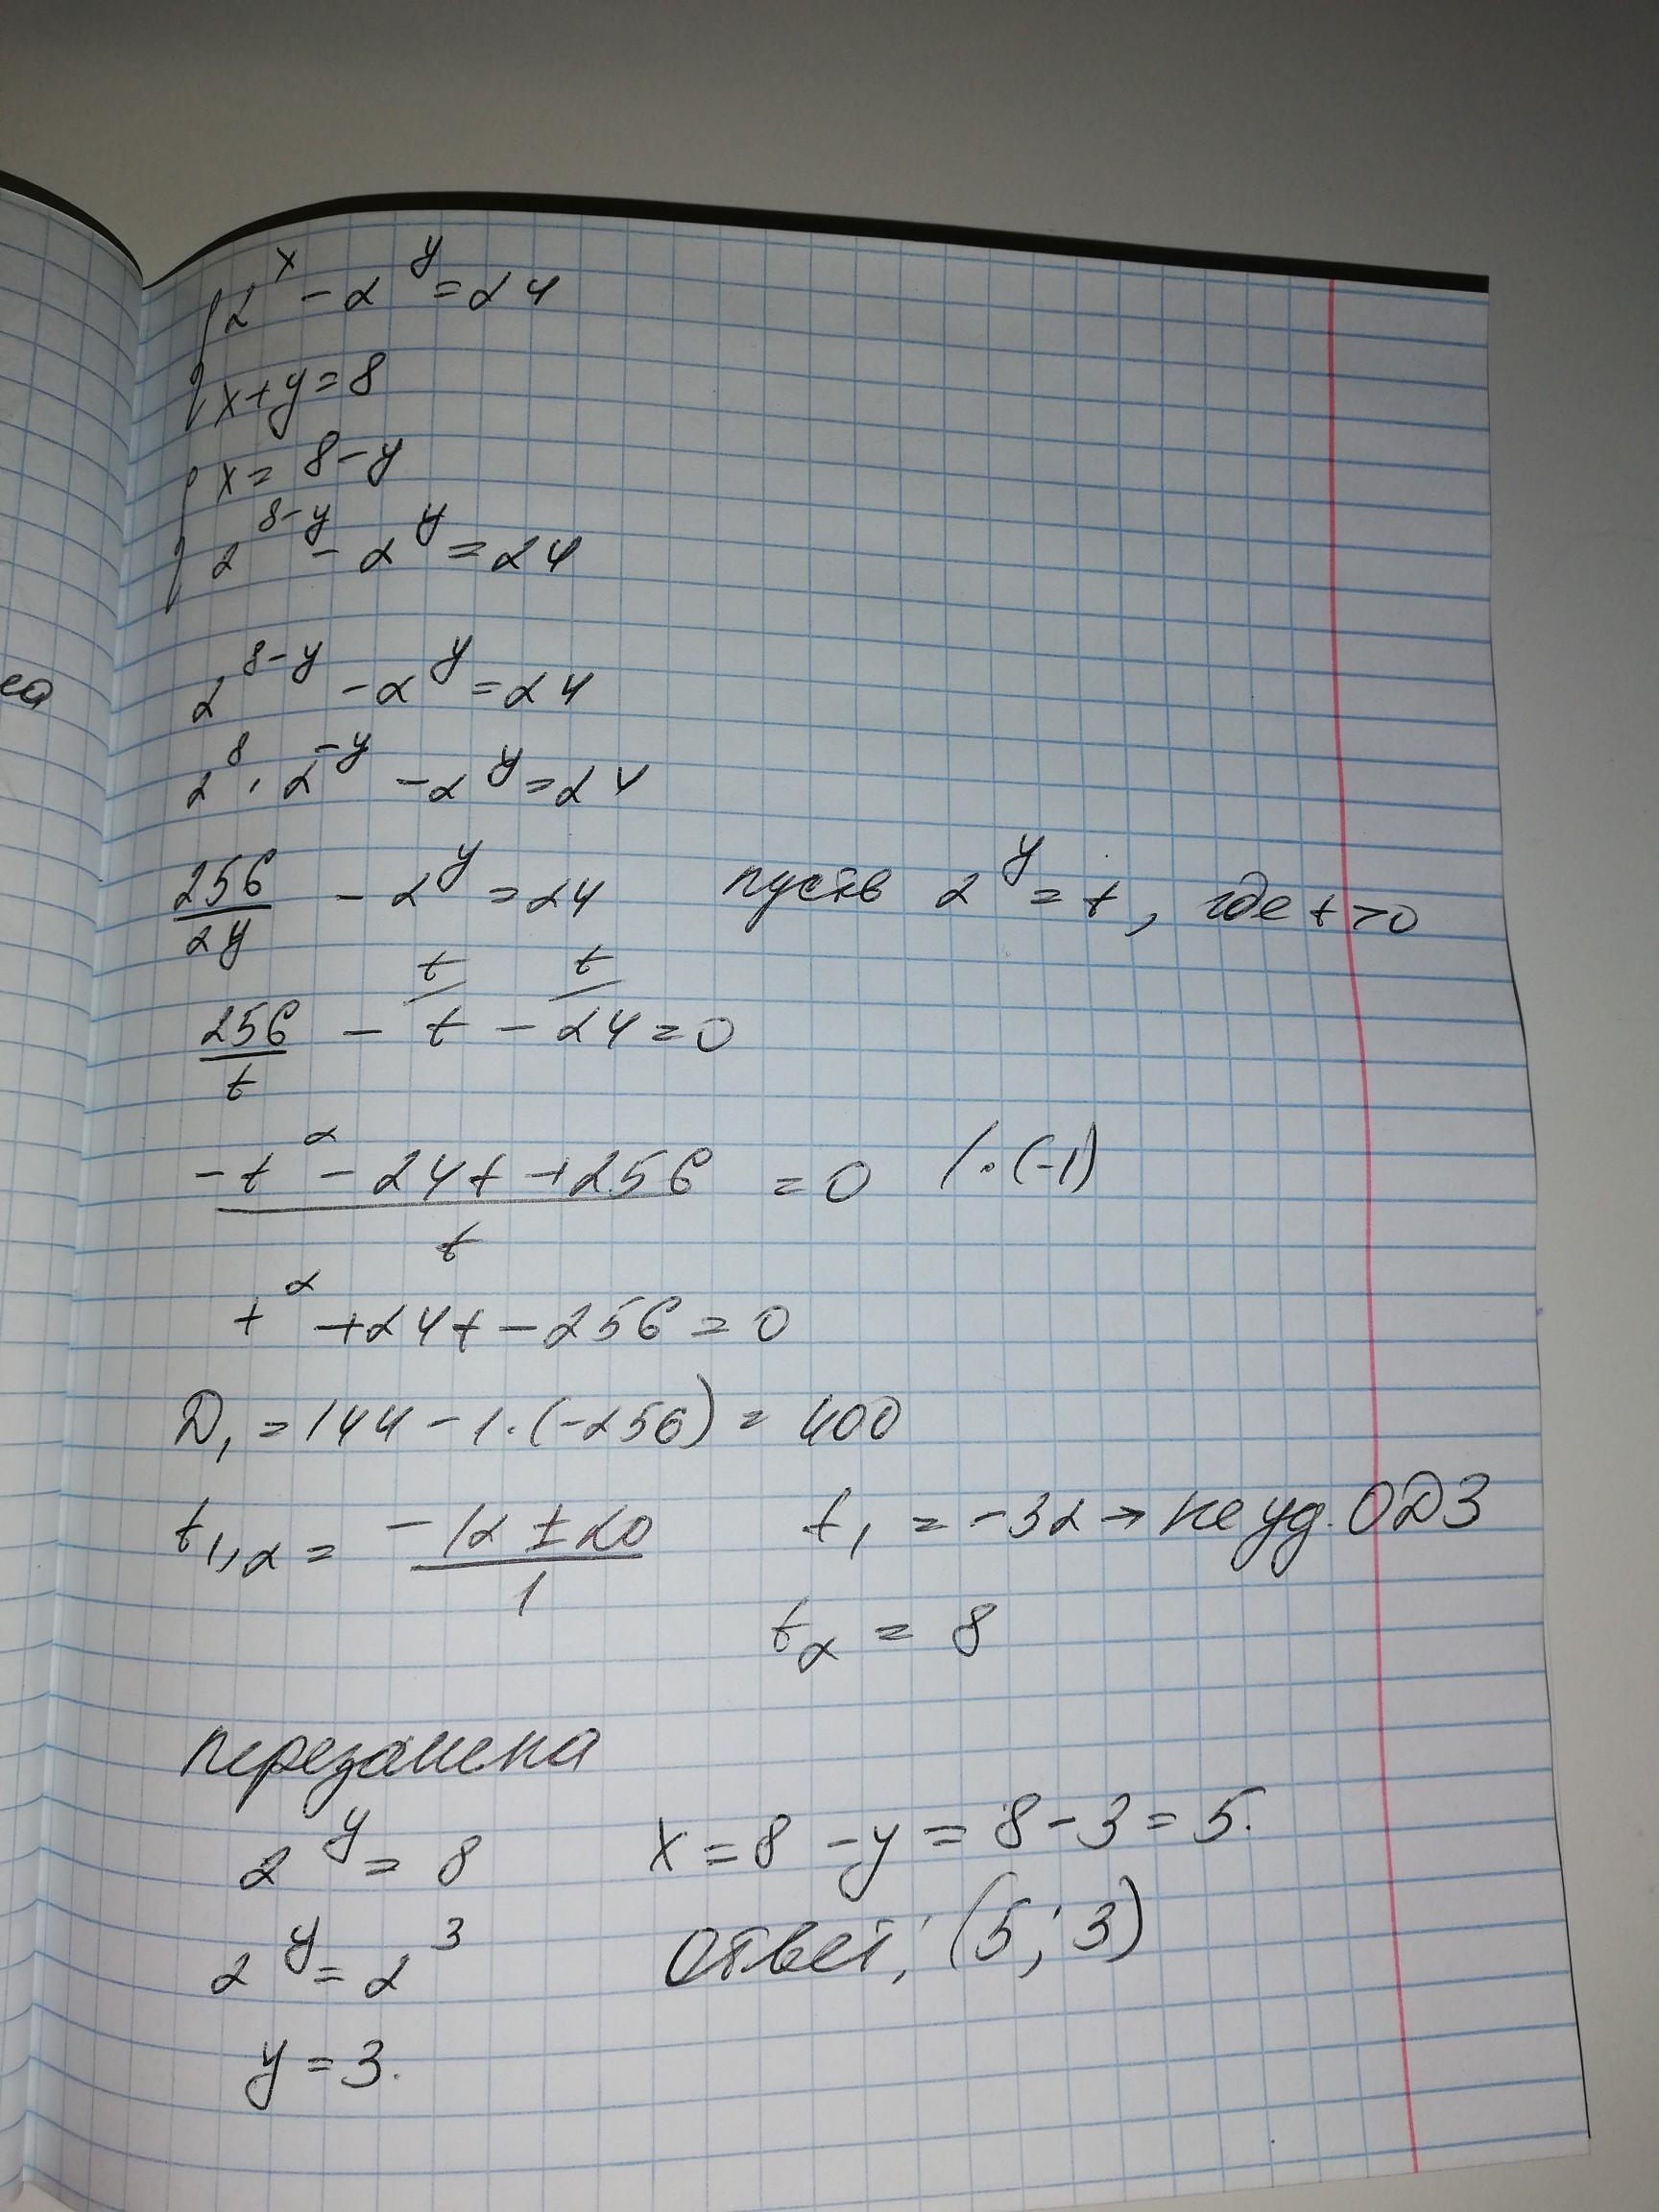 2^x - 2^y = 24
x + y = 8
x = 8 - y
2^(8-y) - 2^y = 24
2^(8-y) - 2^y = 24
2^8 · 2^(-y) - 2^y = 24
256/2^y - 2^y = 24 пусть 2^y = t, где t > 0
t t
256/t - t - 24 = 0
(-t^2 - 24t + 256)/t = 0 / · (-1)
t^2 + 24t - 256 = 0
D₁ = 144 - 1 · (-256) = 400
t₁,₂ = (-12 ± 20)/1 t₁ = -32 → не уд. ОДЗ
t₂ = 8
перезамена
2^y = 8 x = 8 - y = 8 - 3 = 5.
2^y = 2^3 Ответ: (5; 3)
y = 3.